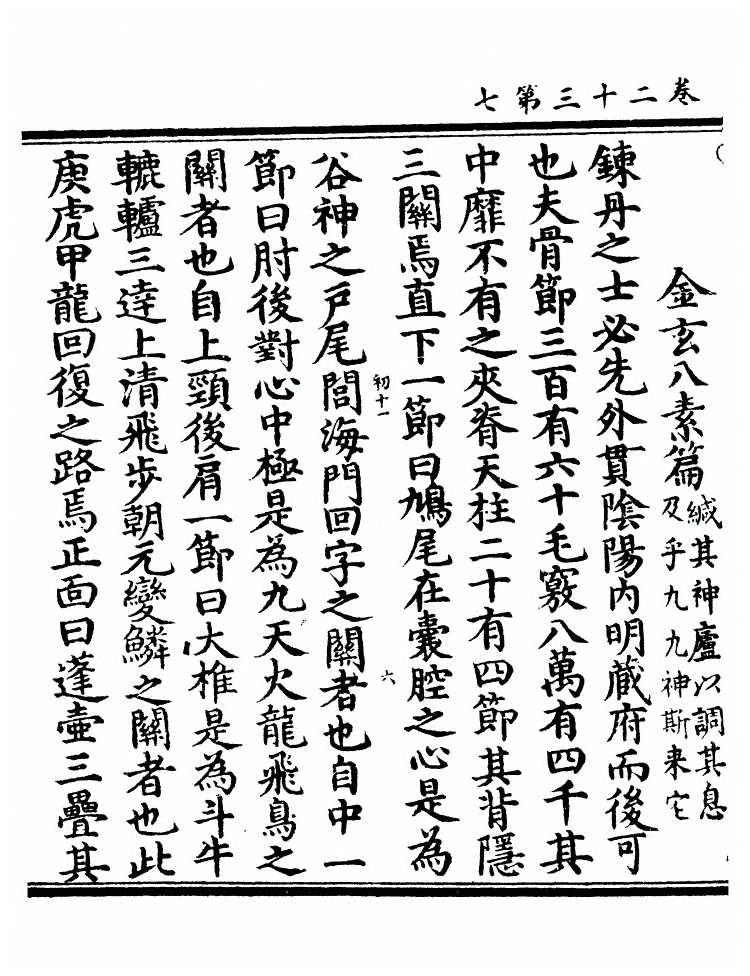 卷二十三第七
金玄八素篇緘其神廬以調其息
及乎九九神斯来宅
鍊丹之士必先外貫陰陽内明蔵府而後可
也夫骨節三百有六十毛竅八萬有四千其
中靡不有之夾脊天柱二十有四節其背隱
三關焉直下一節曰鳩尾在囊腔之心是為
谷神之戸尾閭海門回字之關者也自中一
初十一
六
節曰肘後對心中極是為九天火龍飛鳥之
關者也自上頸後肩一節曰大椎是為斗牛
轆轤三逹上清飛步朝元變鱗之關者也此
庚虎甲龍回復之路焉正面曰蓬壷三疊其